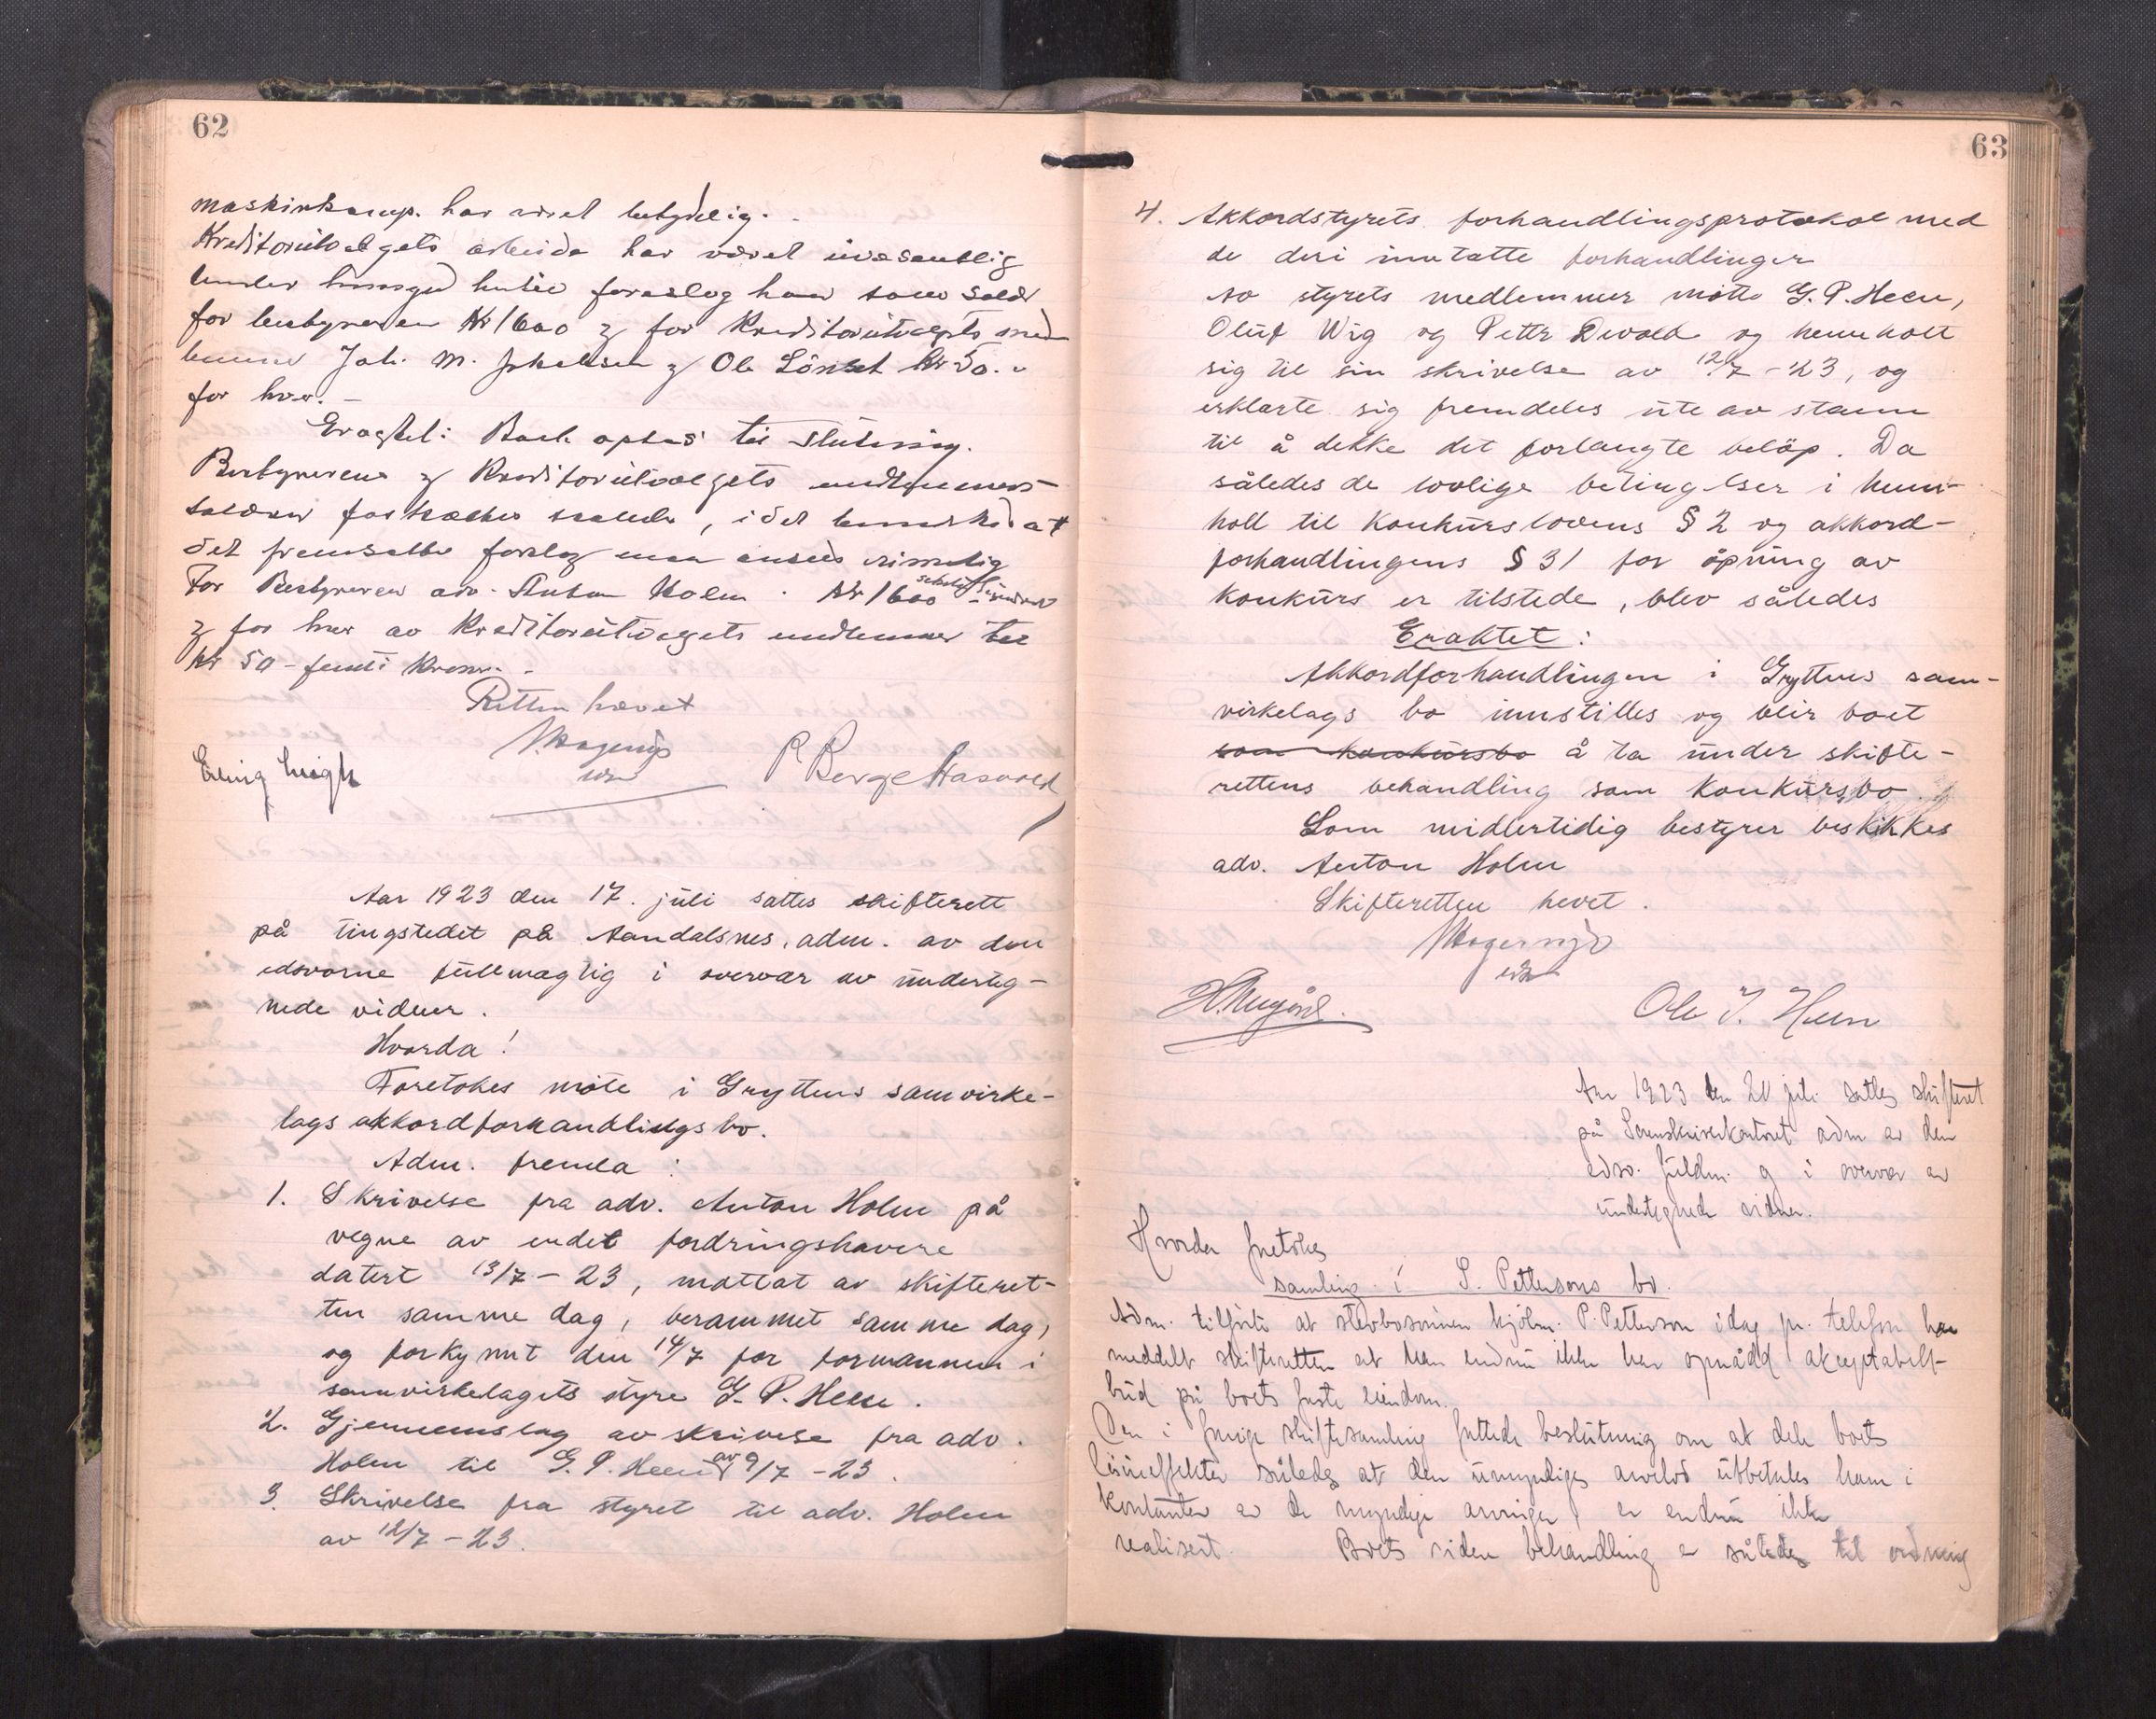 62
maskinkamp. har været betydelig.
Kreditorutvalgets arbeide har været uvæsentlig
Under henvgd hertil foreslog han som salær
for bestyreren Kr 1600 & for Kreditorutvalgets med
lemmer Joh. M. & Ole Lönset Kr 50.-
for hver. -
Eragtet: Boet optas til slutning.
Bestyrerens & Kreditorutvalgets medlemmers
salærer fastsættes saaledes, idet bemerkes at
det fremsatte forslag maa ansees rimelig
For Bestyreren adv. Anton Holm . Kr 1600 - sekstenhundrede
& for hver av Kreditorutvalgets medlemmer til
Kr 50 - femti Kroner. -
Retten hævet
Erling P Berge Hasvold
Aar 1923 den 17. juli sattes skifterett
på tingstedet på Aandalsnes, adm. av den
edsvorne fullmagtig i overvær av underteg-
nede vidner.
Hvorda!
Foretokes møte i Gryttens samvirke-
lags akkordforhandlingsbo.
Adm. fremla :
1. Skrivelse fra adv. Anton Holm på
vegne av endel fordringshavere
datert 13/7 - 23, mottat av skifteret-
ten samme dag, berammet samme dag,
og forkynnt den 14/7 for formannen i
samvirkelagets styre G. P. Heen.
2. Gjennemslag av skrivelse fra adv.
Holm til G. P. Heen av 9/7 - 23.
3. Skrivelse fra styret til adv. Holm
av 12/7 - 23.
63
4. Akkordstyrets forhandlingsprotokol med
de deri inntatte forhandlinger
Av styrets medlemmer møtte G. P. Heen,
Oluf Wig og Petter Devold og henholdt
sig til sin skrivelse av 12/7 - 23, og
erklærte sig fremdeles ute av stann
til å dekke det forlangte beløp. Da
således de lovlige betingelser i henn-
holl til Konkurslovens § 2 og akkord-
forhandlingens § 31 for åpning av
konkurs er tilstede, blev således
Eraktet :
Akkordforhandlingen i Gryttens sam-
virkelags bo innstilles og blir boet
som konkursbo å ta under skifte-
rettens behandling som konkursbo.
Som midlertidig bestyrer beskikkes
adv. Anton Holm
Skifteretten hevet.
Ole J. Heen
Aar 1923 den 20 juli sattes skifteret
på Sorenskriverkontoret adm av den
edsv. fuldm. og i overvær av
undertegnede vidner.
Hvorda foretokes
samling i S. Pettersons bo.
Adm. tilførte at stervbosønnen hjólm. P. Petterson idag pr. telefon har
meddelt skifteretten at han endnu ikke har opnådd akceptabelt
bud på boets faste eiendom.
Den i forrige skiftesamling fattede beslutning om at dele boets
løsøreffekter således at den umyndiges arvelod utbetales ham i
kontanter av de myndige arvinger er endnu ikke
realisert. Boets videre behandling er således til ordning